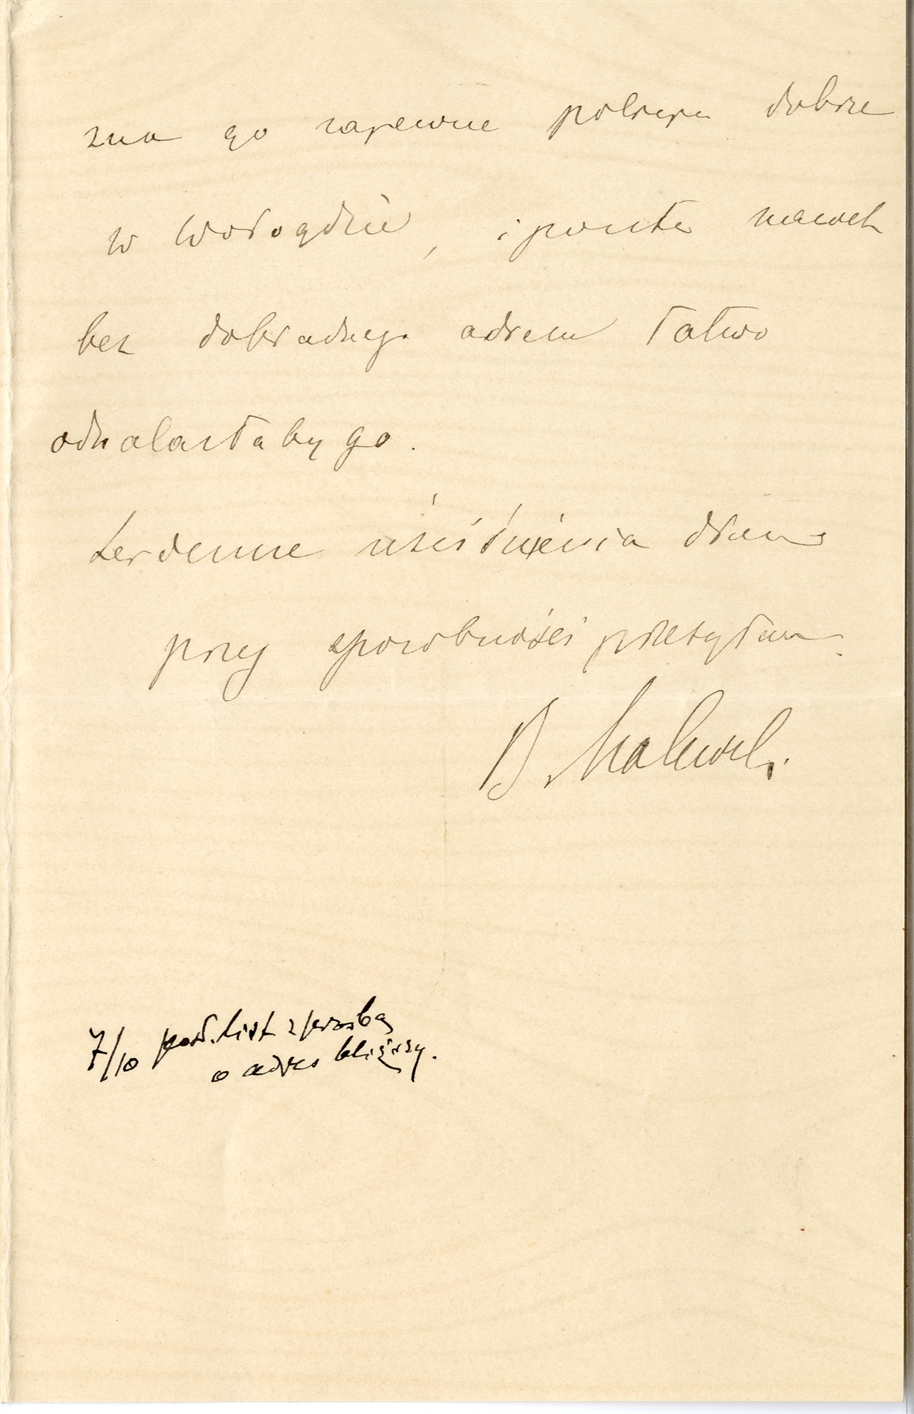 zna go zapewne policya dobrze
w Wołogdzie, i poczta nawet
bez dokładnego adresu łatwo
odnalazłaby go.
Serdeczne uściśnienia dłoni
przy sposobności przesyłam.
B. Malewski.
7/10 pos. list z prośbą
o adres bliższy.